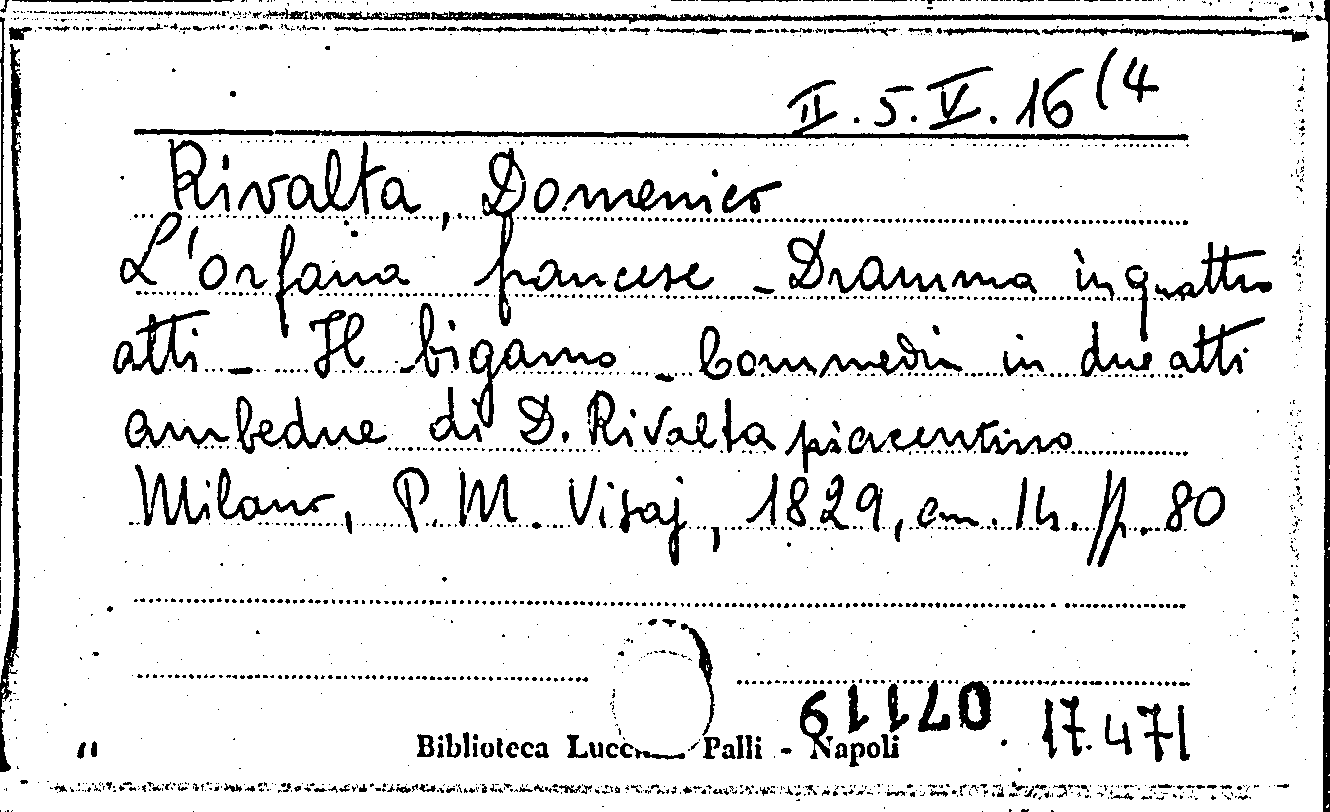 II.5.V.16(4
Rivalta, Domenico
L'orfana francese - Dramma in quattro
atti - Il bigamo - Commedia in due atti
ambedue di D. Rivalta piacentino
Milano, P. M. Visaj, 1829, cm. 14. pp. 80
17.471
Biblioteca Palli - Napoli